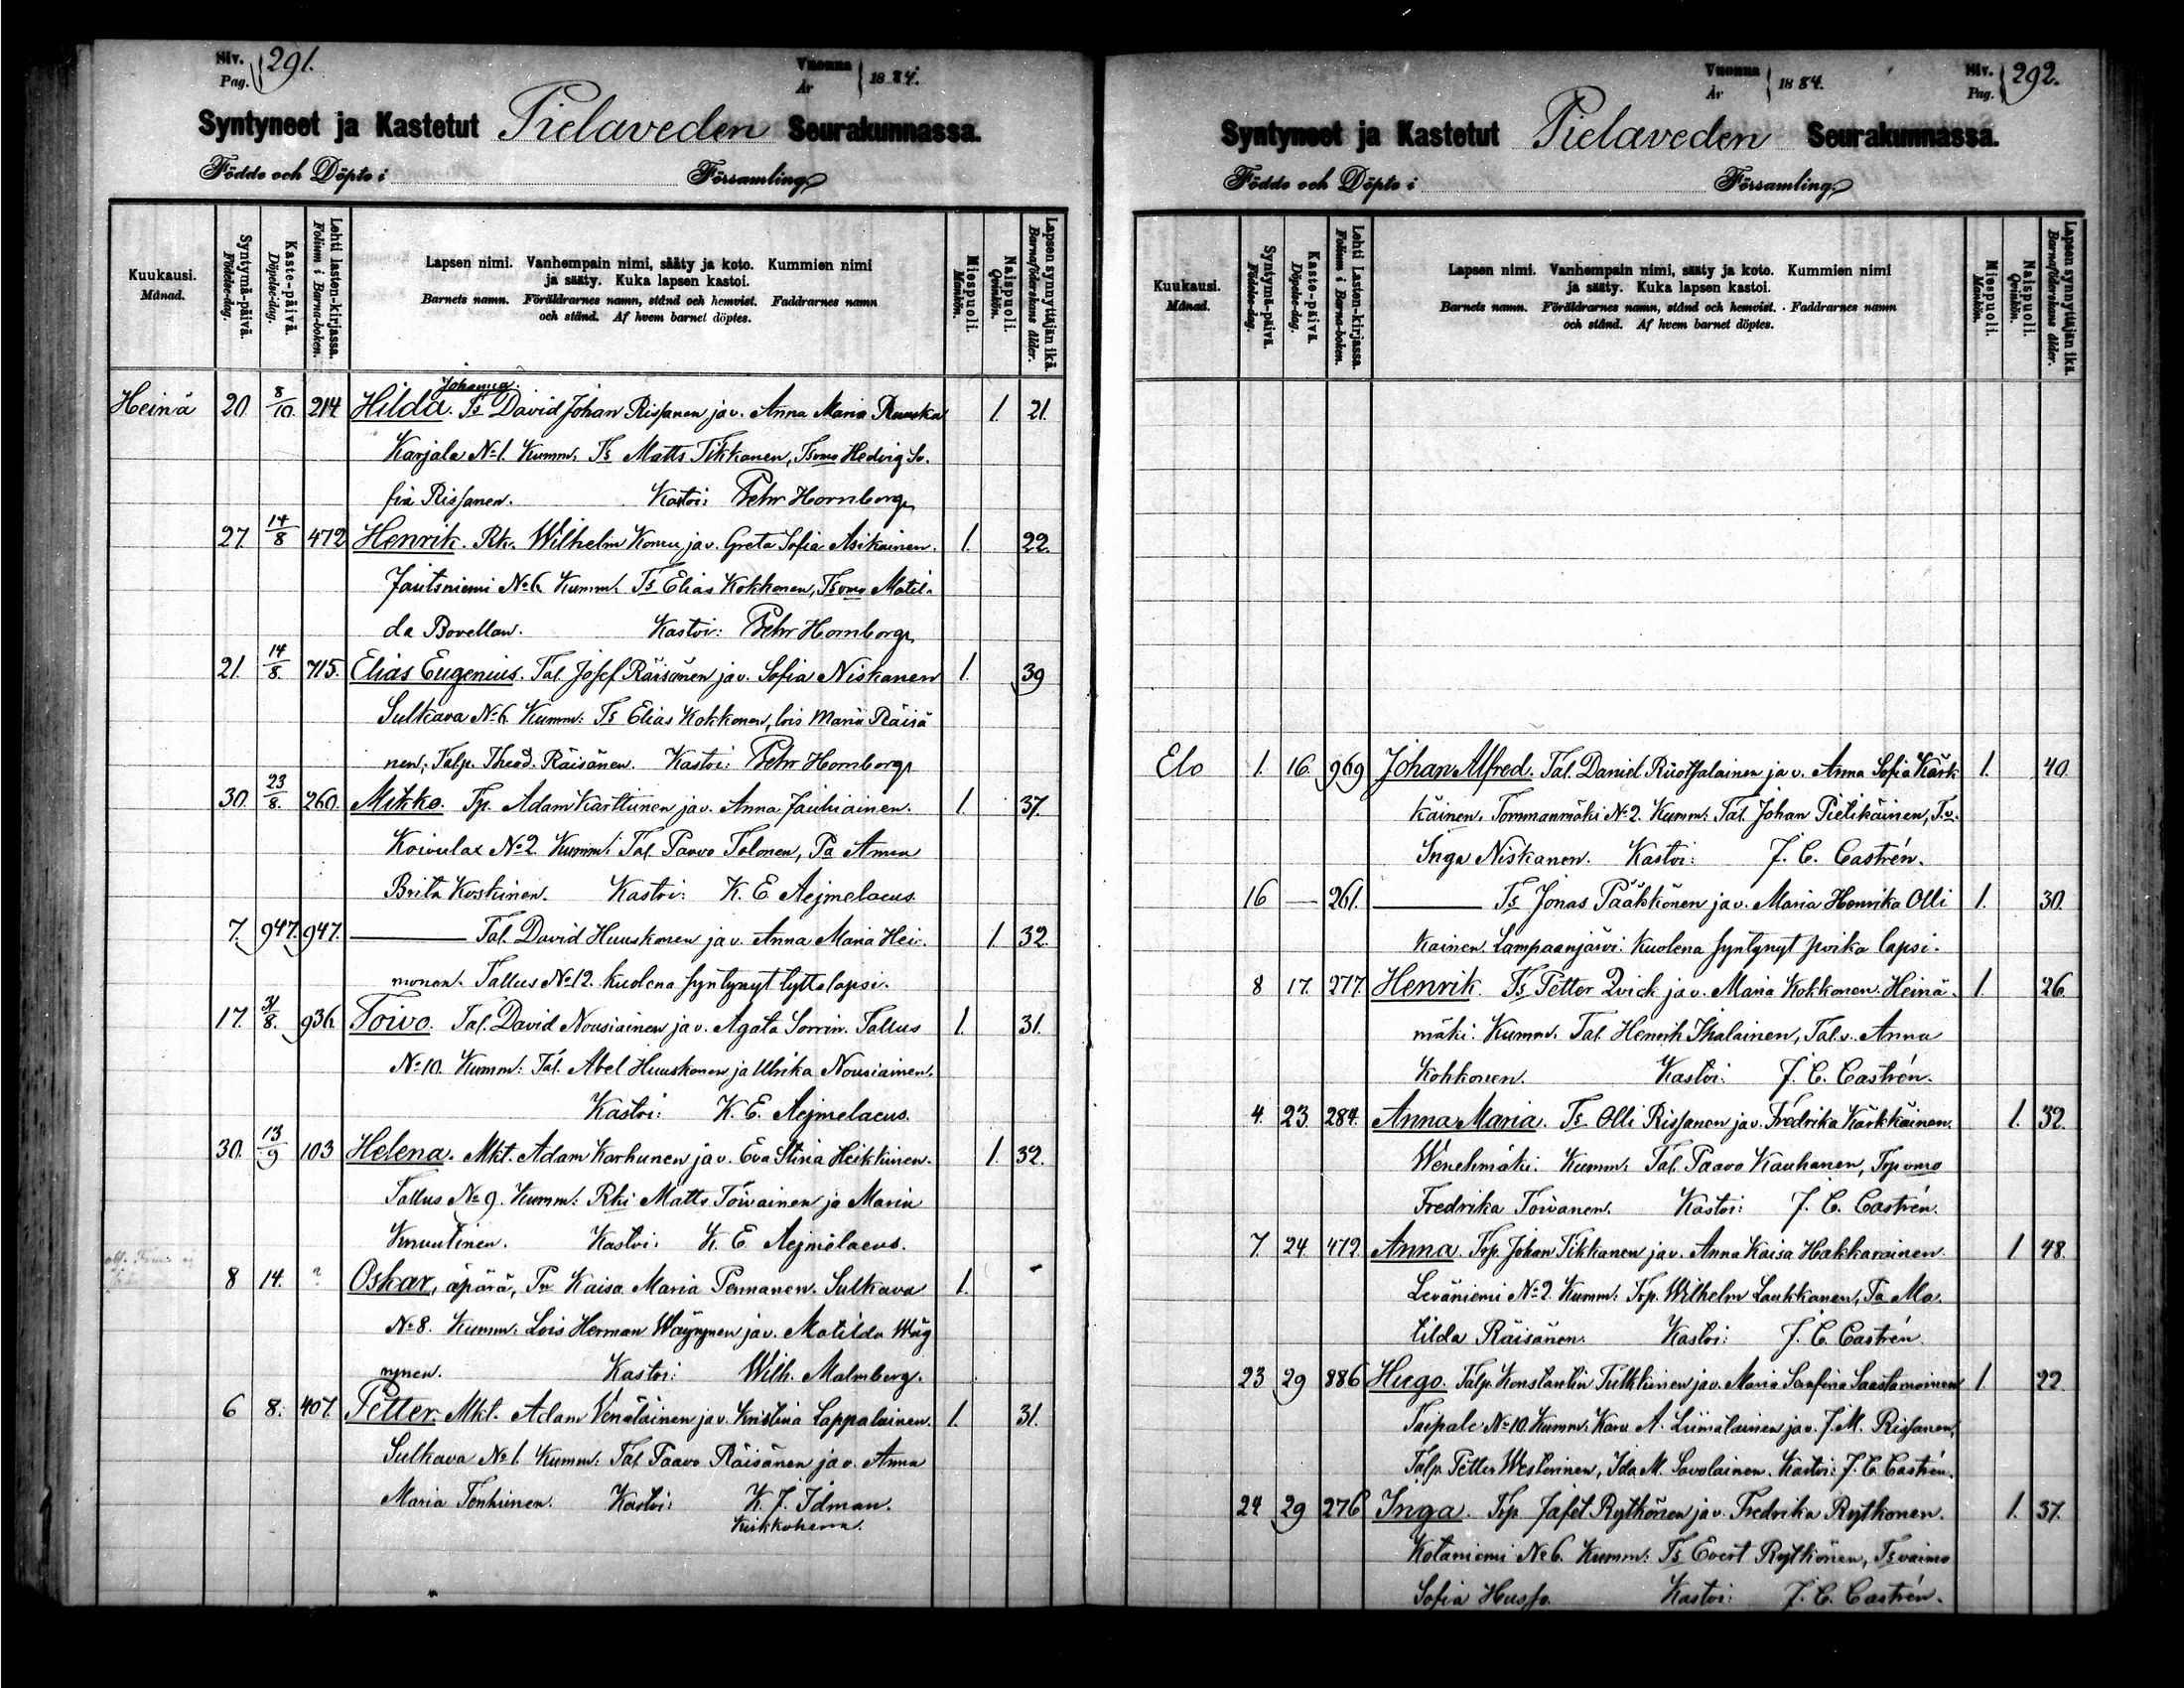 Siv. Pag. 291.
Vuonna År 1884.
Syntyneet ja Kastetut Pielaveden Seurakunnassa.
Födde och Döpte i Församling
Kuukausi. Månad.
Syntymä-päivä. Födelse-dag.
Kaste-päivä. Döpelse-dag.
Lehti lasten-kirjassa. Folium i Barna-boken.
Lapsen nimi. Vanhempain nimi, sääty ja koto. Kummien nimi
ja sääty. Kuka lapsen kastoi.
Barnets namn. Föräldrarnes namn, stånd och hemvist. Faddrarnes namn
och stånd. Af hvem barnet döptes.
Miespuoli. Mankön.
Naispuoli. Qvinkön.
Lapsen synnyttäjän ikä. Barnaföderskans ålder.
Johanna.
Heinä 20. 8/10. 214 Hilda. Ts David Johan Rissanen ja v. Anna Maria Ruuska 1. 21.
Karjala No 1. Kumm. Ts Matts Tikkanen, Tsvmo Hedvig So-
fia Rissanen. Kastoi: Pehr Hornborg
27. 14/8 472 Henrik. Rk. Wilhelm Komu ja v. Greta Sofia Asikainen. 1. 22.
Jautsniemi No 6. Kumm. Ts Elias Kokkonen, Tsvmo Matil-
da Bovellan. Kastoi: Pehr Hornborg
21. 14/8. 715. Elias Eugenius. Tal. Josef Räisänen ja v. Sofia Niskanen 1. 39
Sulkava No 6. Kumm: Ts Elias Kokkonen, lois Maria Räisä
nen, Talp. Theod. Räisänen. Kastoi: Pehr Hornborg
30. 23/8. 260. Mikko. Tp. Adam Karttunen ja v. Anna Jauhiainen. 1. 37.
Koivulax No 2. Kumm: Tal. Paavo Tolonen, Pa Anna
Brita Koskinen. Kastoi: K. E. Aejmelaeus.
7. 947. 947. — Tal. David Huuskonen ja v. Anna Maria Hei- 1. 32.
monen. Tallus No 12. Kuolena syntynyt tyttolapsi.
17. 31/8. 936. Toivo. Tal. David Nousiainen ja v. Agata Sorrin. Tallus 1. 31.
No 10. Kumm: Tal. Abel Huuskonen ja Ulrika Nousiainen.
Kastoi: K. E. Aejmelaeus.
30. 13/9 103 Helena. Mkt. Adam Karhunen ja v. Eva Stina Heikkinen. 1. 32.
Tallus No 9. Kumm: Rki Matts Toivainen ja Maria
Knuutinen. Kastoi: K. E. Aejmelaeus.
8 14. ? Oskar, äpärä, Pa Kaisa Maria Pennanen. Sulkava 1. -
No 8. Kumm. Lois Herman Wäyrynen ja v. Matilda Wäy
rynen. Kastoi: Wilh. Malmberg.
6 8. 407. Petter. Mkt. Adam Venäläinen ja v. Kristina Lappalainen. 1. 31.
Sulkava No 1. Kumm: Tal. Paavo Räisänen ja v. Anna
Maria Tenhunen. Kastoi: K. J. Idman.
Kirkkoherra.
Vuonna År 1884.
Siv. Pag. 292.
Syntyneet ja Kastetut Pielaveden Seurakunnassa.
Födde och Döpte i Församling
Kuukausi. Månad.
Syntymä-päivä. Födelse-dag.
Kaste-päivä. Döpelse-dag.
Lehti Lasten-kirjassa. Folium i Barna-boken.
Lapsen nimi. Vanhempain nimi, sääty ja koto. Kummien nimi
ja sääty. Kuka lapsen kastoi.
Barnets namn. Föräldrarnes namn, stånd och hemvist. Faddrarnes namn
och stånd. Af hvem barnet döptes.
Miespuoli. Mankön.
Naispuoli. Qvinkön.
Lapsen synnyttäjän ikä. Barnaföderskans ålder.
Elo 1. 16. 969 Johan Alfred. Tal. Daniel Ruotsalainen ja v. Anna Sofia Kärk 1. 40.
käinen. Tommanmäki No 2. Kumm: Tal. Johan Pietikäinen, T.v.
Inga Niskanen. Kastoi: J. C. Castrén.
16 — 261. — Ts Jonas Pääkkönen ja v. Maria Henrika Olli 1. 30.
kainen. Lampaanjärvi. Kuolena syntynyt poika lapsi.
8 17. 277. Henrik. Ts Petter Qvick ja v. Maria Kokkonen. Heinä- 1. 26.
mäki. Kumm. Tal. Henrik Ihalainen, Tal.v. Anna
Kokkonen. Kastoi: J. C. Castrén.
4. 23. 284. Anna Maria. Ts Olli Rissanen ja v. Fredrika Kärkkäinen. 1. 32.
Wenehmäki. Kumm: Tal. Paavo Kauhanen, Trp vmo
Fredrika Toivanen. Kastoi: J. C. Castrén.
7. 24. 472. Anna. Trp. Johan Tikkanen ja v. Anna Kaisa Hakkarainen. 1 48.
Leväniemi No 2. Kumm: Trp. Wilhelm Laukkanen, Ta Ma-
tilda Räisänen. Kastoi: J. C. Castrén.
23 29 886 Hugo. Talp. Konstantin Tulkkinen ja v. Maria Serafina Saastamoinen 1. 22.
Taipale No 10. Kumm: Karv. A. Liimalainen ja v. J. M. Rissanen,
Talp. Petter Westerinen, Ida M. Savolainen. Kastoi: J. C. Castrén.
24 29 276 Inga. Trp. Jafet Rytkönen ja v. Fredrika Rytkonen. 1. 37.
Kotaniemi No 6. Kumm: Ts Evert Rytkönen, Ts vaimo
Sofia Husso. Kastoi: J. C. Castrén.